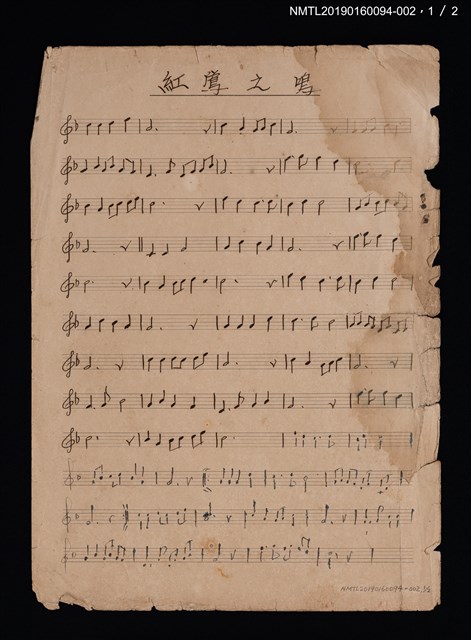 NMTL20190160094-002，1 / 2
紅鶯之鳴
NMTL20190160094-002 1/2